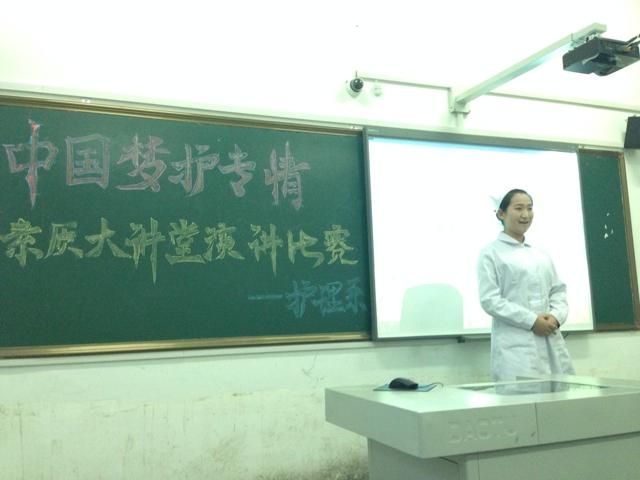 中国梦护专情
素质大讲堂演讲比赛
——护理系
BAOTU